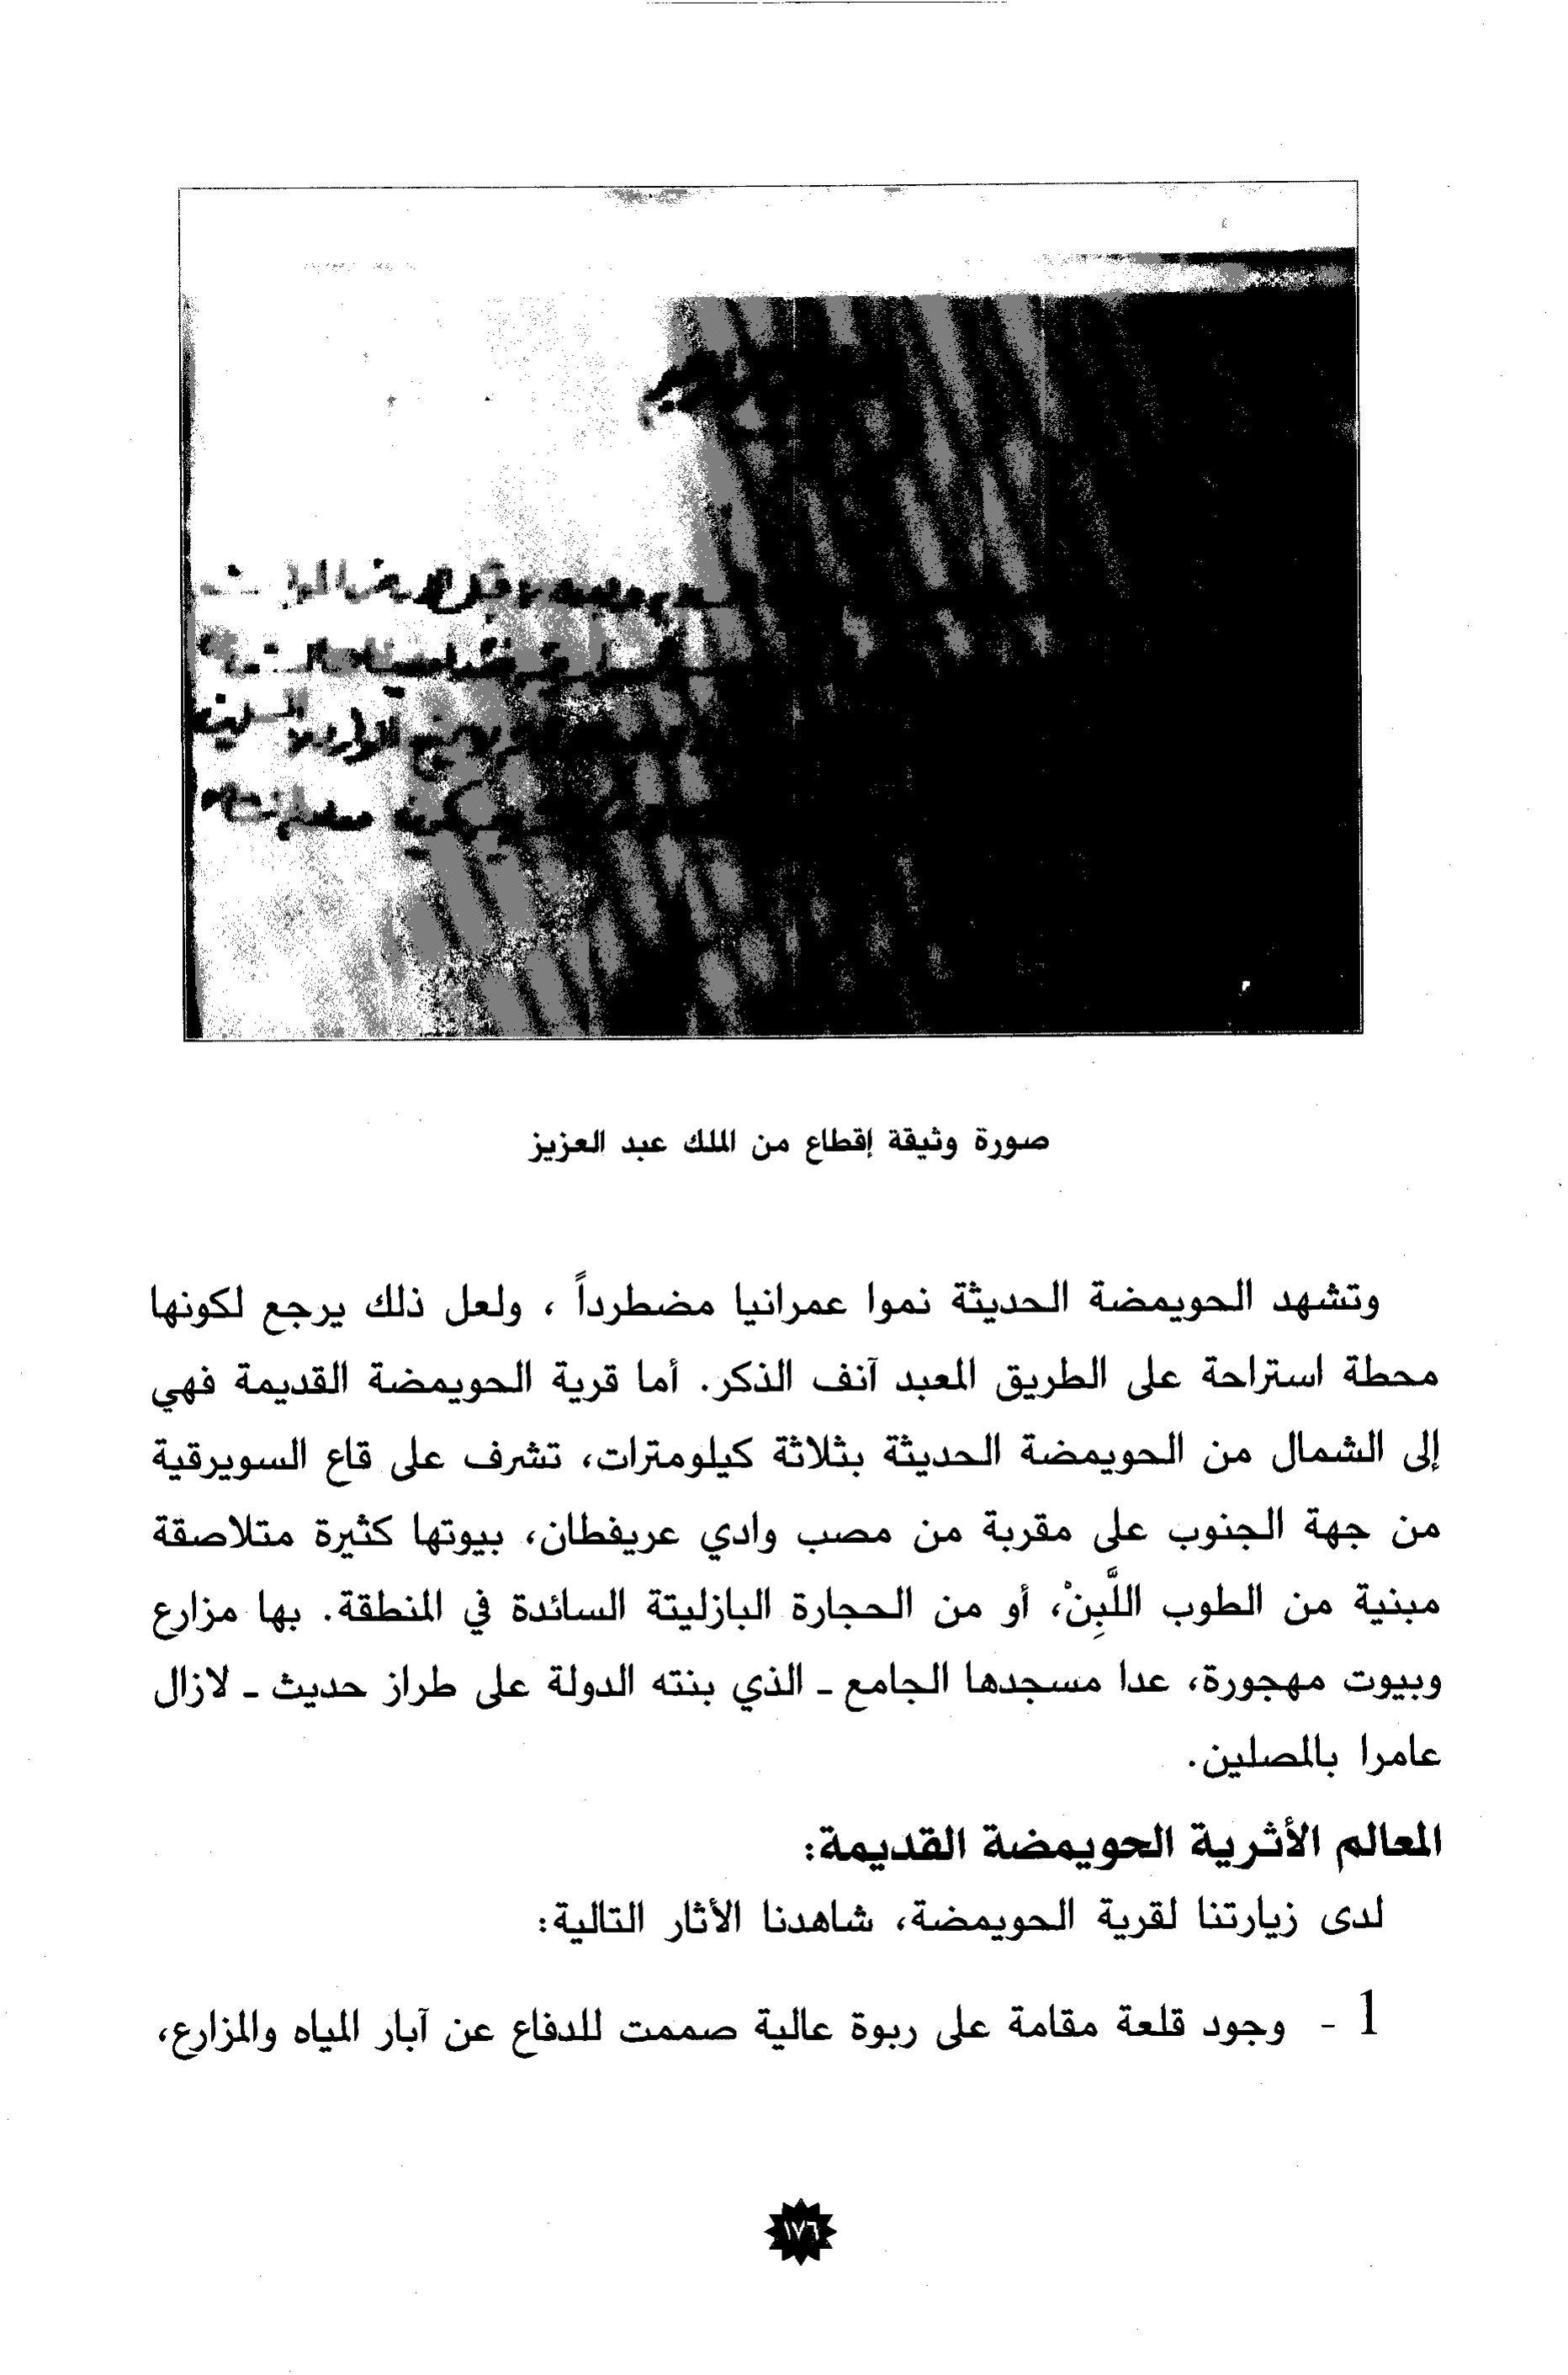 صورة وثيقة إقطاع من الملك عبد العزيز
وتشهد الحويمضة الحديثة نموا عمرانيا مضطرداً ، ولعل ذلك يرجع لكونها
محطة استراحة على الطريق المعبد آنف الذكر. أما قرية الحويمضة القديمة فهي
إلى الشمال من الحويمضة الحديثة بثلاثة كيلومترات، تشرف على قاع السويرقية
من جهة الجنوب على مقربة من مصب وادي عريفطان، بيوتها كثيرة متلاصقة
مبنية من الطوب اللَّبِنْ، أو من الحجارة البازليتة السائدة في المنطقة. بها مزارع
وبيوت مهجورة، عدا مسجدها الجامع ـ الذي بنته الدولة على طراز حديث ـ لازال
عامرا بالمصلين.
المعالم الأثرية الحويمضة القديمة:
لدى زيارتنا لقرية الحويمضة، شاهدنا الأثار التالية:
1 - وجود قلعة مقامة على ربوة عالية صممت للدفاع عن آبار المياه والمزارع،
١٧٦